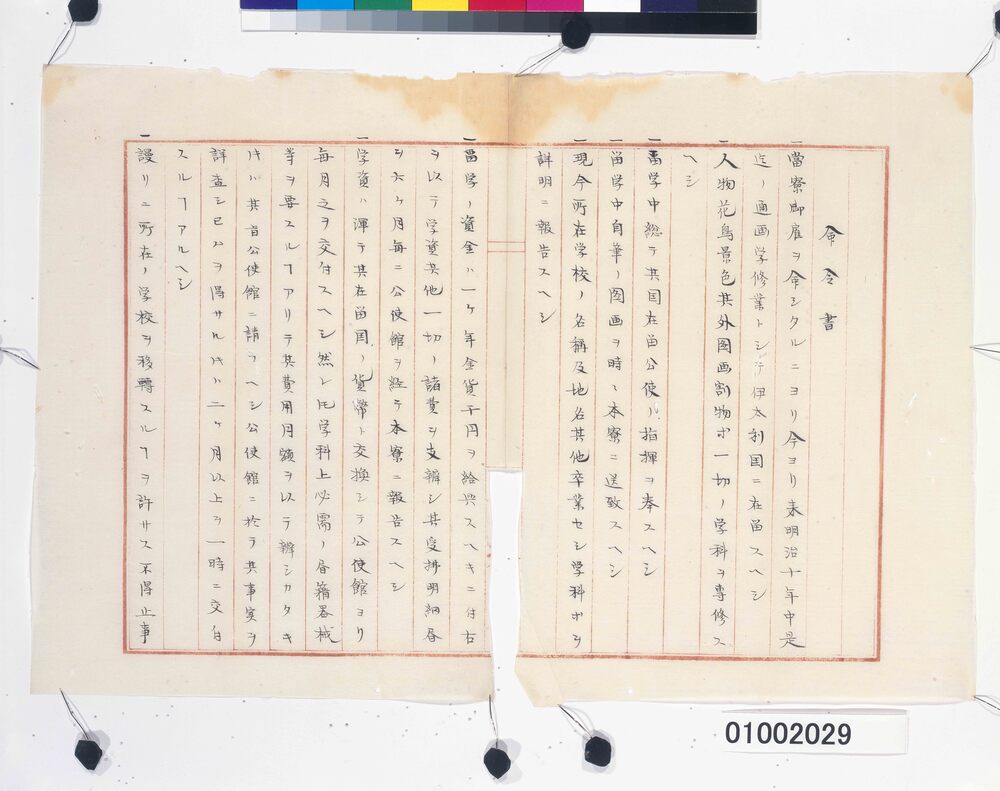 命令書
一當寮御雇ヲ命シタルニヨリ今ヨリ来明治十年中是
迄ノ通画学修業トシテ伊太利国ニ在留スヘシ
一人物花鳥景色其外図画割物等一切ノ学科ヲ専修ス
ヘシ
一留学中総テ其国在留公使ノ指揮ヲ奉スヘシ
一留学中自筆ノ図画ヲ時々本寮ニ送致スヘシ
一現今所在学校ノ名稱及地名其他卒業セシ学科等ヲ
詳明ニ報告スヘシ
一留学ノ資金ハ一ケ年金貨千円ヲ給與スヘキニ付右
ヲ以テ学資其他一切ノ諸費ヲ支辨シ其受拂明細書
ヲ六ケ月毎ニ公使館ヲ経テ本寮ニ報告スヘシ
一学資ハ渾テ其在留国ノ貨幣ト交換シテ公使館ヨリ
毎月之ヲ交付スヘシ然レ𪜈学科上必需ノ書籍器械
等ヲ要スルヿアリテ其費用月額ヲ以テ辨シカタキ
時ハ其旨公使館ニ請フヘシ公使館ニ於テ其事実ヲ
詳査シ已ムヲ得サル時ハ二ケ月以上ヲ一時ニ交付
スルヿアルヘシ
一謾リニ所在ノ学校ヲ移轉スルヿヲ許サス不得止事
01002029